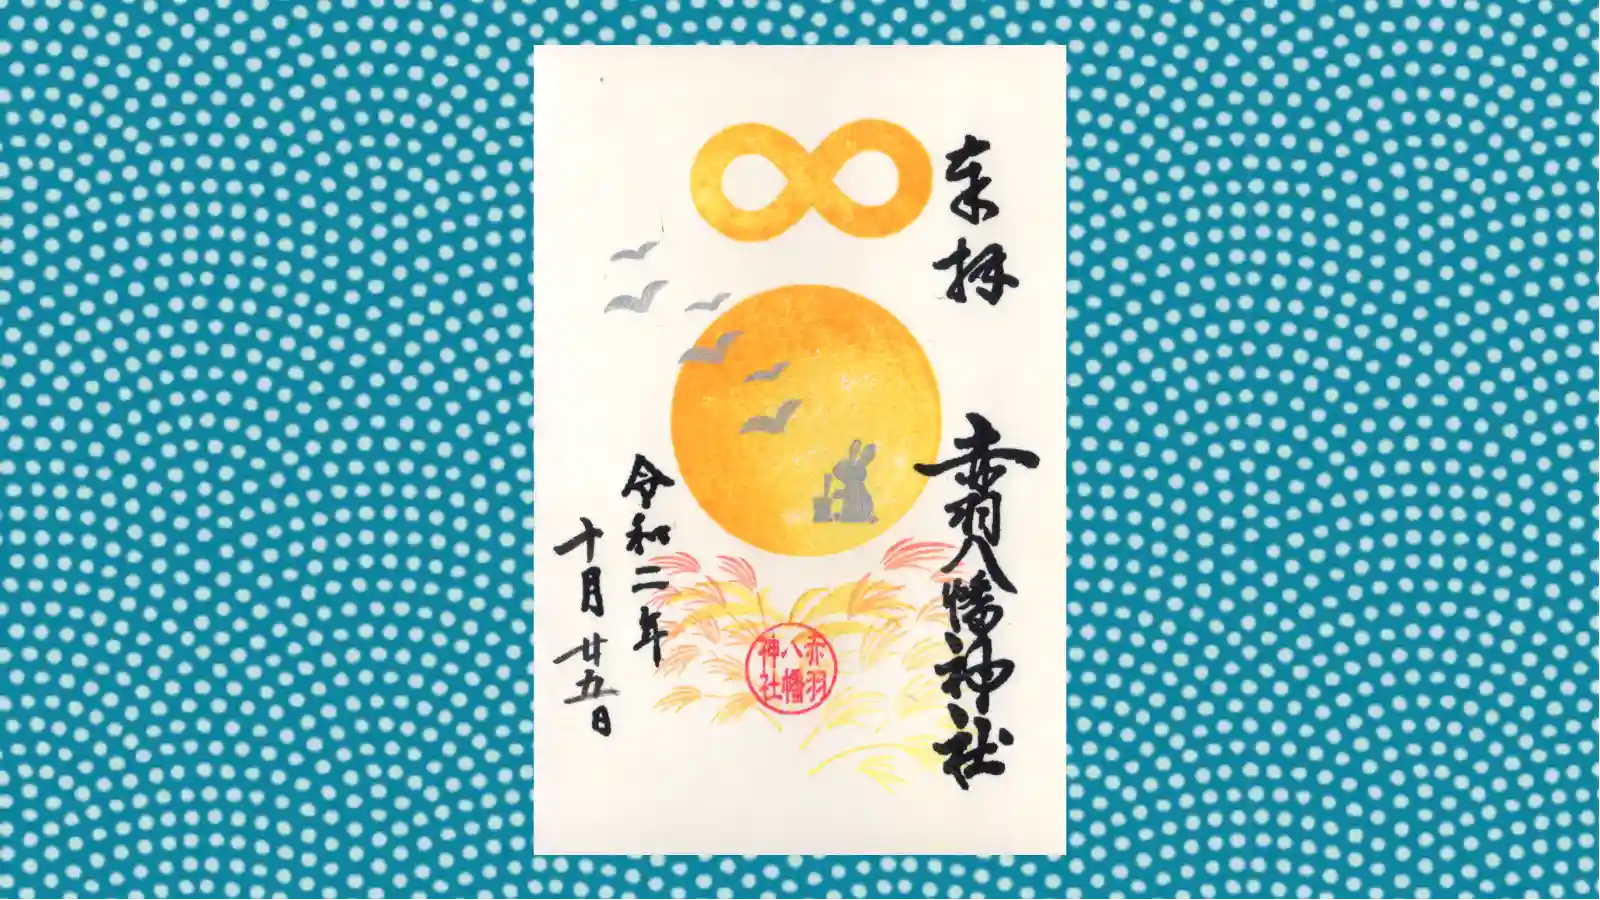 奉拝
赤羽八幡神社
赤羽
八幡
神社
令和二年
十月廿五日